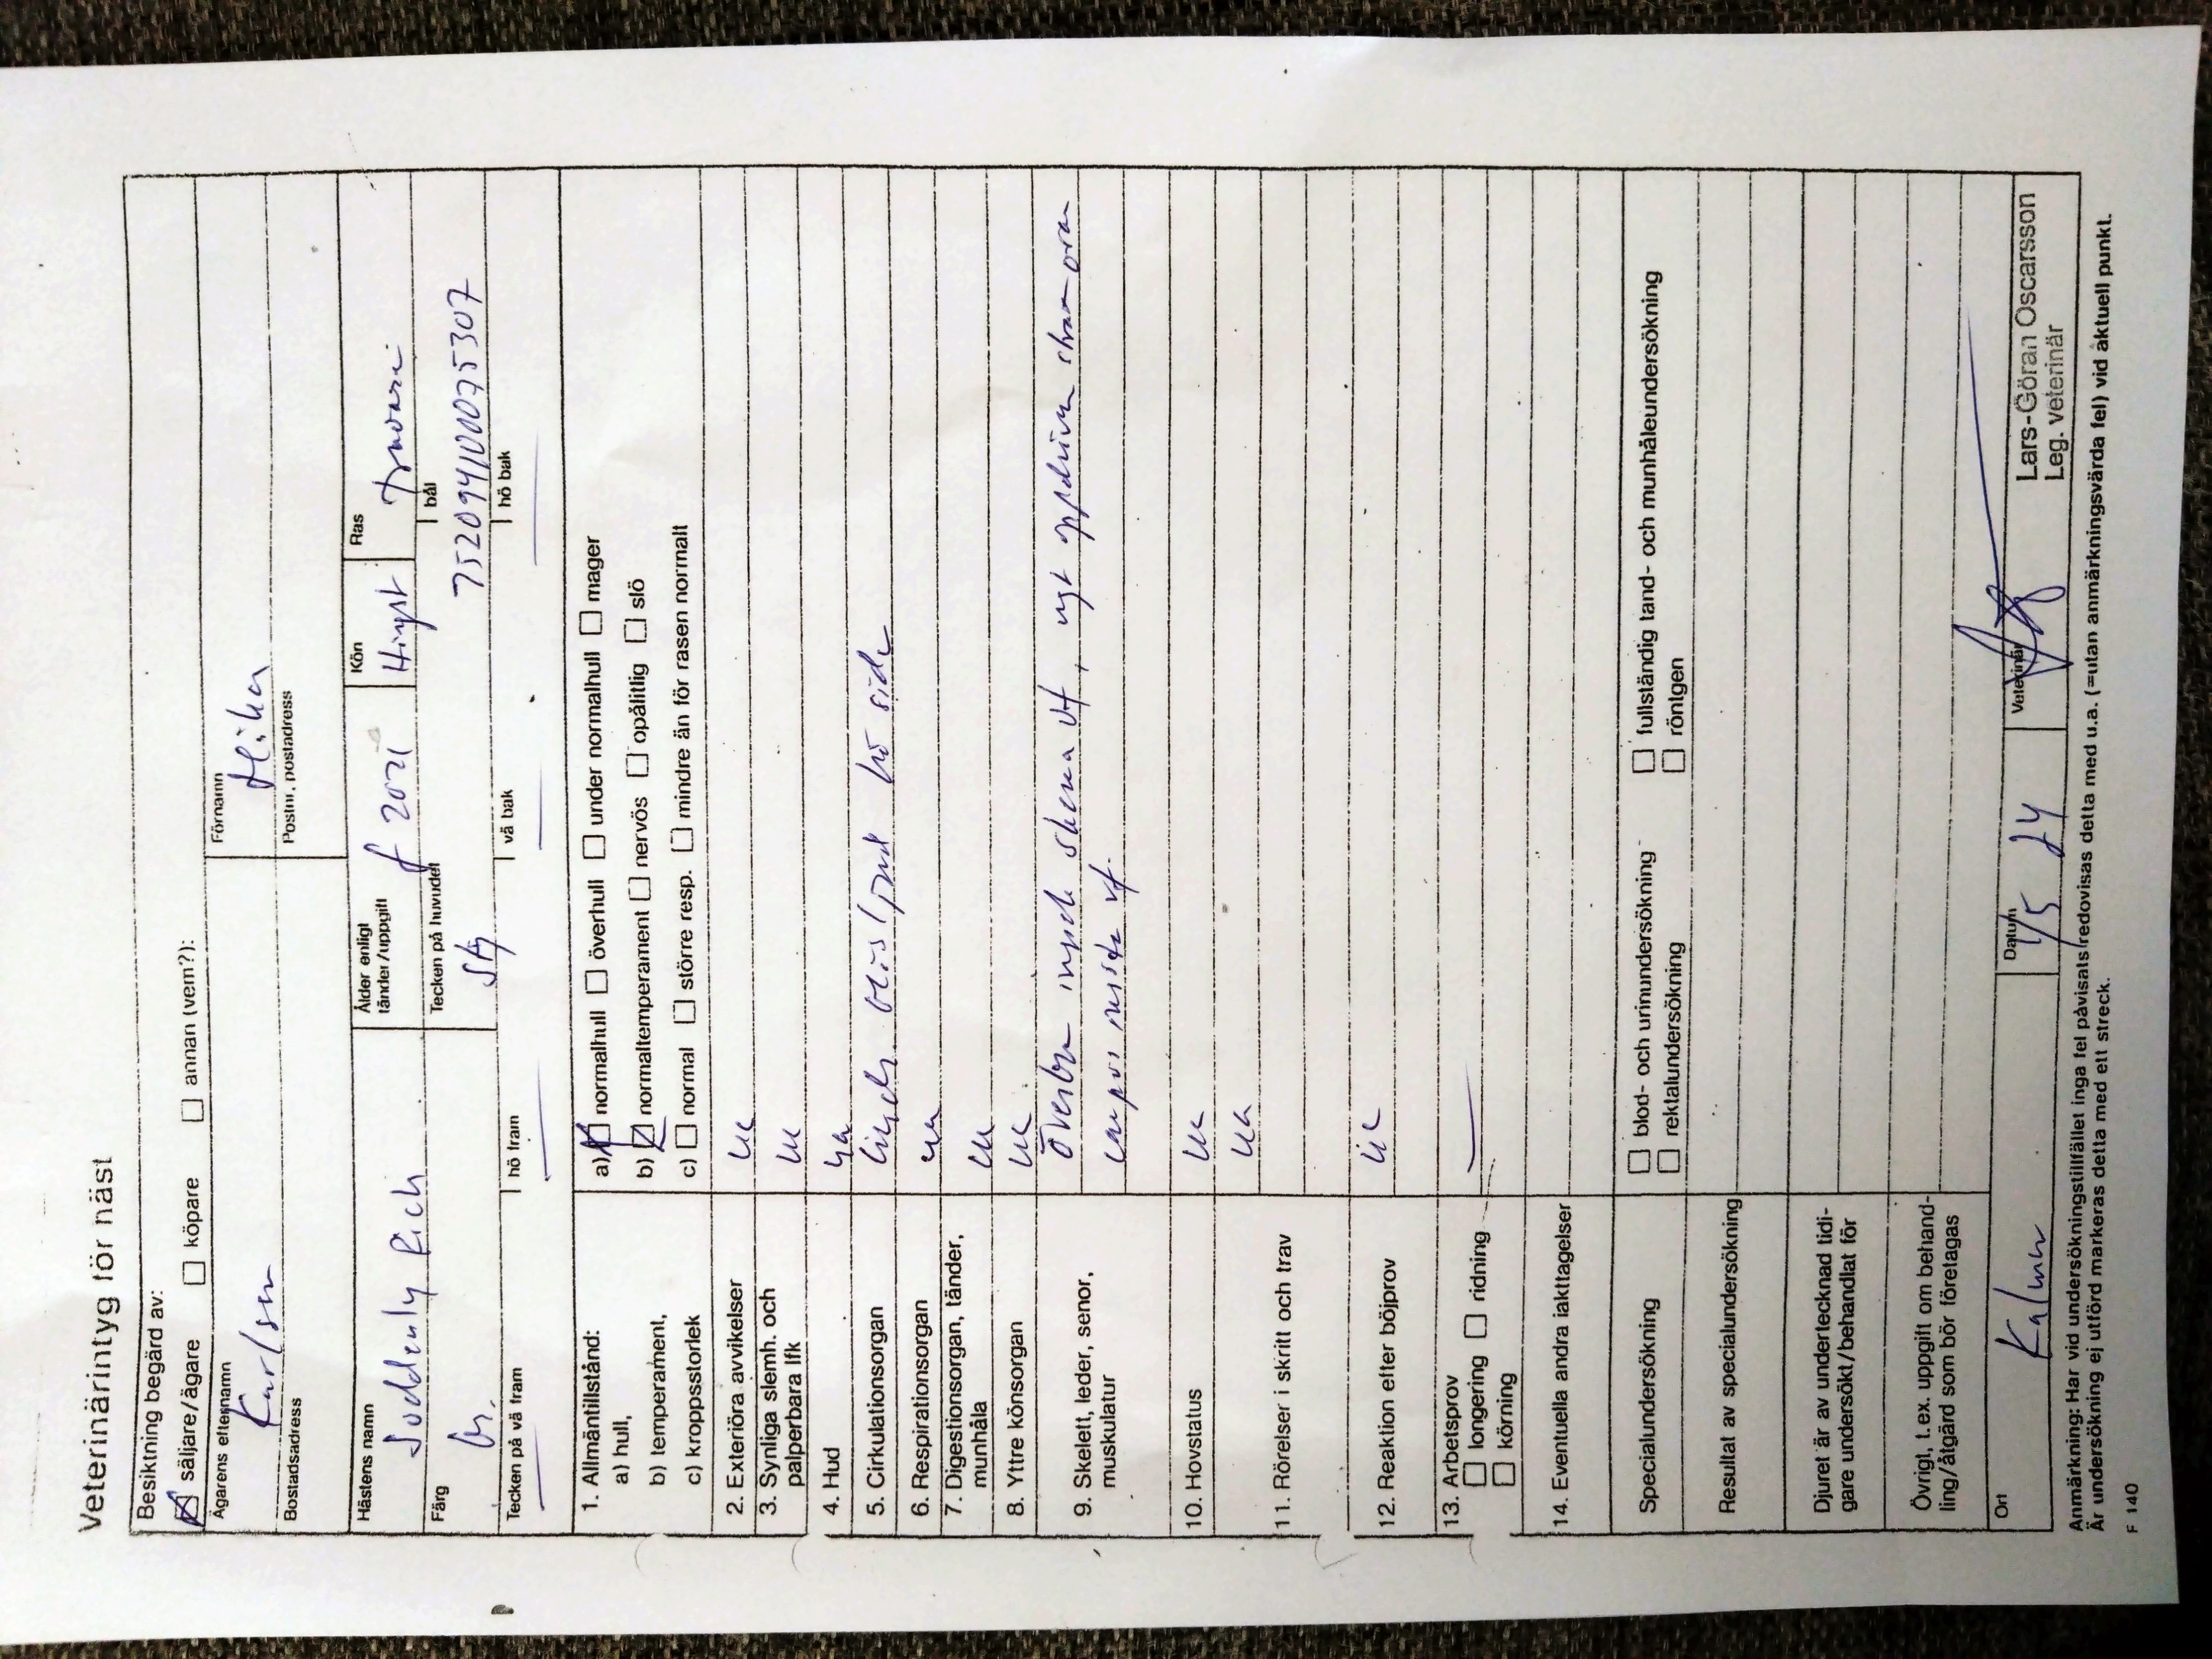 Veterinärintyg för häst
Besiktning begärd av:
säljare/ägare köpare annan (vem?):
Ägarens efternamn Förnamn
Karlsson Mika
Bostadsadress Postnr, postadress
Hästens namn Ålder enligt tänder/uppgift Kön Ras
Soddenly Rich f 2021 Hingst
Färg Tecken på huvudet bål
br. Stj 752094100075307
Tecken på vä fram hö fram vä bak hö bak
1. Allmäntillstånd:
a) hull, a) normalhull överhull under normalhull mager
b) temperament, b) normaltemperament nervös opålitlig slö
c) kroppsstorlek c) normal större resp. mindre än för rasen normalt
2. Exteriöra avvikelser ua
3. Synliga slemh. och
palperbara lfk ua
4. Hud ua
5. Cirkulationsorgan hö sida
6. Respirationsorgan ua
7. Digestionsorgan, tänder,
munhåla ua
8. Yttre könsorgan ua
9. Skelett, leder, senor, Överben insida skena vf,
muskulatur carpus insida vf.
10. Hovstatus ua
11. Rörelser i skritt och trav ua
12. Reaktion efter böjprov ua
13. Arbetsprov
longering ridning
körning
14. Eventuella andra iakttagelser
Specialundersökning blod- och urinundersökning fullständig tand- och munhåleundersökning
rektalundersökning röntgen
Resultat av specialundersökning
Djuret är av undertecknad tidi-
gare undersökt/behandlat för
Övrigt, t.ex. uppgift om behand-
ling/åtgärd som bör företagas
Ort Datum Veterinär
Kalmar 1/5 24 Lars-Göran Oscarsson
Leg. veterinär
Anmärkning: Har vid undersökningstillfället inga fel påvisats redovisas detta med u.a. (=utan anmärkningsvärda fel) vid aktuell punkt.
Är undersökning ej utförd markeras detta med ett streck.
F 140